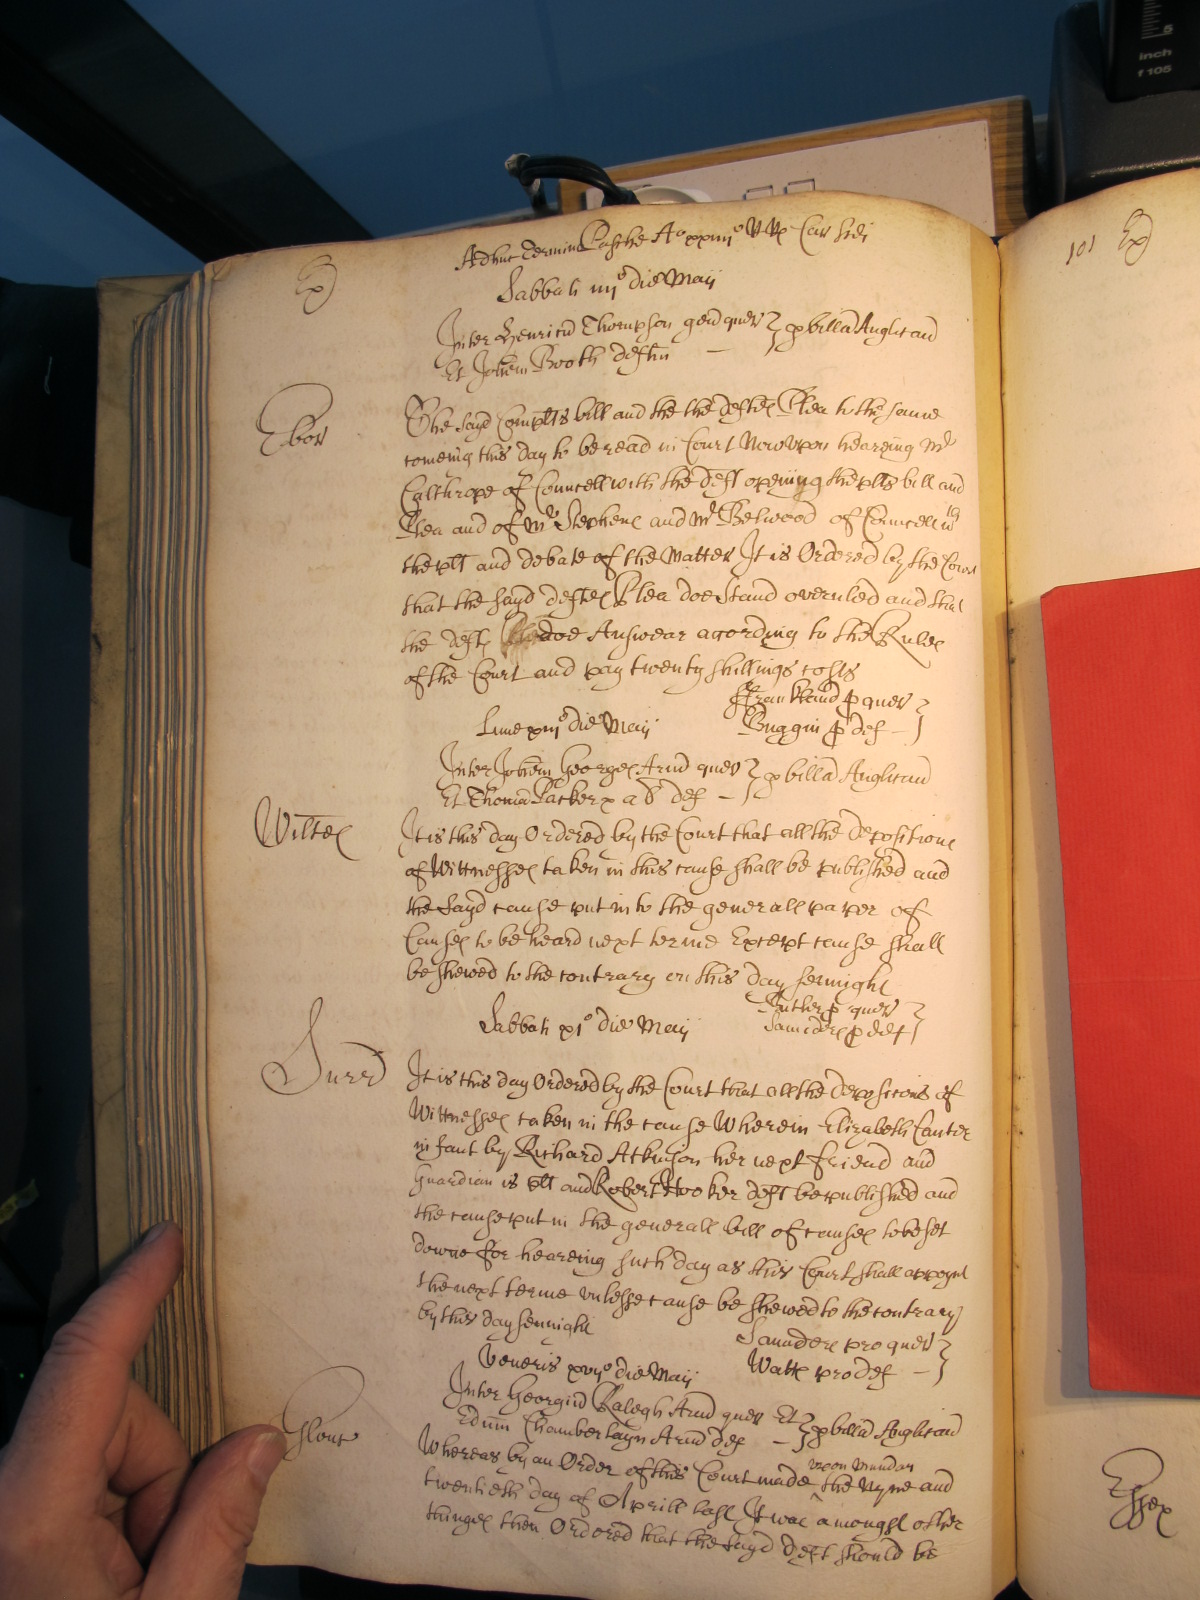 Adhuc Termin Pasche Ao xxiiijo RRs Car Scdi
Ex
Sabbati iiijo die Maij
Inter Henricu Thompson gen quer } p billa Anglicand
Et Johem Booth deften
Ebor
The sayd Complts bill and the the deftes Plea to the same
comeing this day to be read in Court Now upon hearing Mr
Calthrope of Councell with the deft opening the plts bill and
Plea and of Mr Stephens and Mr Belwood of Councell wth
the plt and debate of the Matter It is Ordered by the Court
that the sayd deftes Plea doe stand overruled and that
the deft doe Answear acording to the Rules
of the Court and pay twenty shillings costs
Frankland p quer }
Lune die Maij
Buggin p def }
Inter Johem Georges Armd quer } p billa Anglicand
Et Thomam Packer x als def }
Wiltes
It is this day Ordered by the Court that all the depositions
of Wittnesses taken in this cause shall be published and
the sayd cause put into the generall paper of
Causes to be heard next terme Except cause shall
be shewed to the contrary on this day sennight
p quer }
Sabbati xjo die Maij
Saunders p deft }
Surrd
It is this day Ordered by the Court that all the deposicons of
Wittnesses taken in the cause Wherein Elizabeth
infant by Richard Atkinson her next friend and
guardian is plt and Robert Hooker deft be published and
the cause put in the generall bill of causes to be set
downe for heareing such day as this Court shall appoynt
the next terme unlesse cause be shewed to the contrary
by this day sennight
Saunders pro quer }
Veneris xvijo die Maij
Watts pro def }
Inter Georgiu Ralegh Armd quer Et } p billa Anglicand
Edmm Chamberlayn Armd def }
Glouc
upon munday
Whereas by an Order of this Court made ^ the Nyne and
twentieth day of Aprill last It was amongst other
thinges then Ordered that the sayd deft should be
101 Ex
Essex
inch
f 105
5